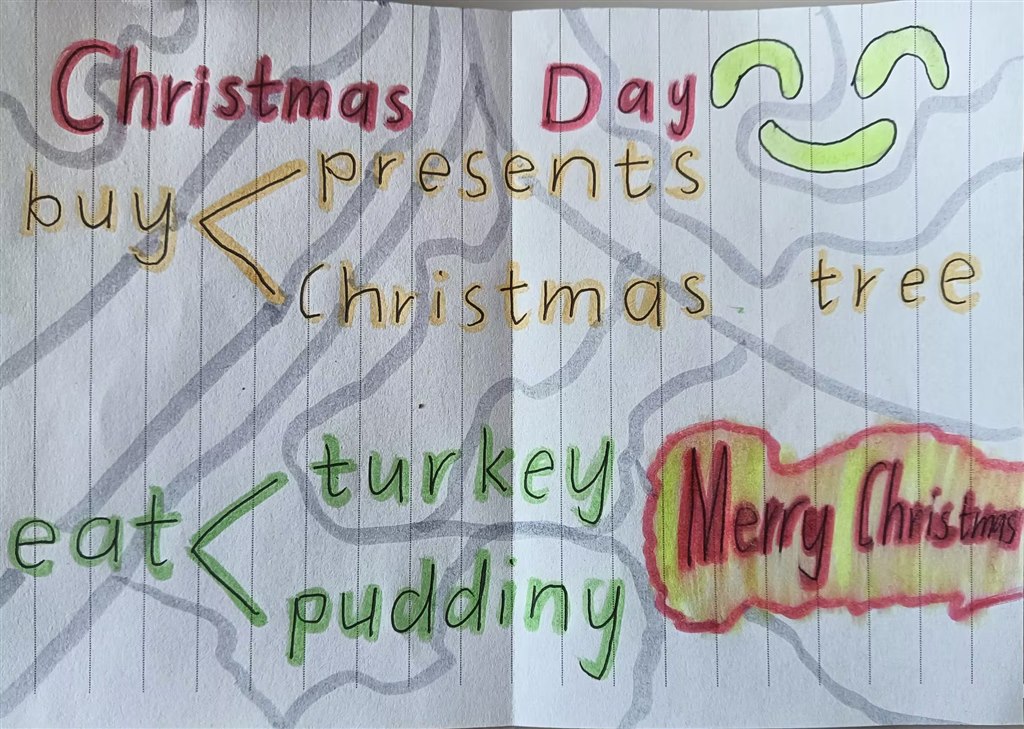 Christmas Day
buy
presents
Christmas tree
eat
turkey
puddiny
Merry Christmas